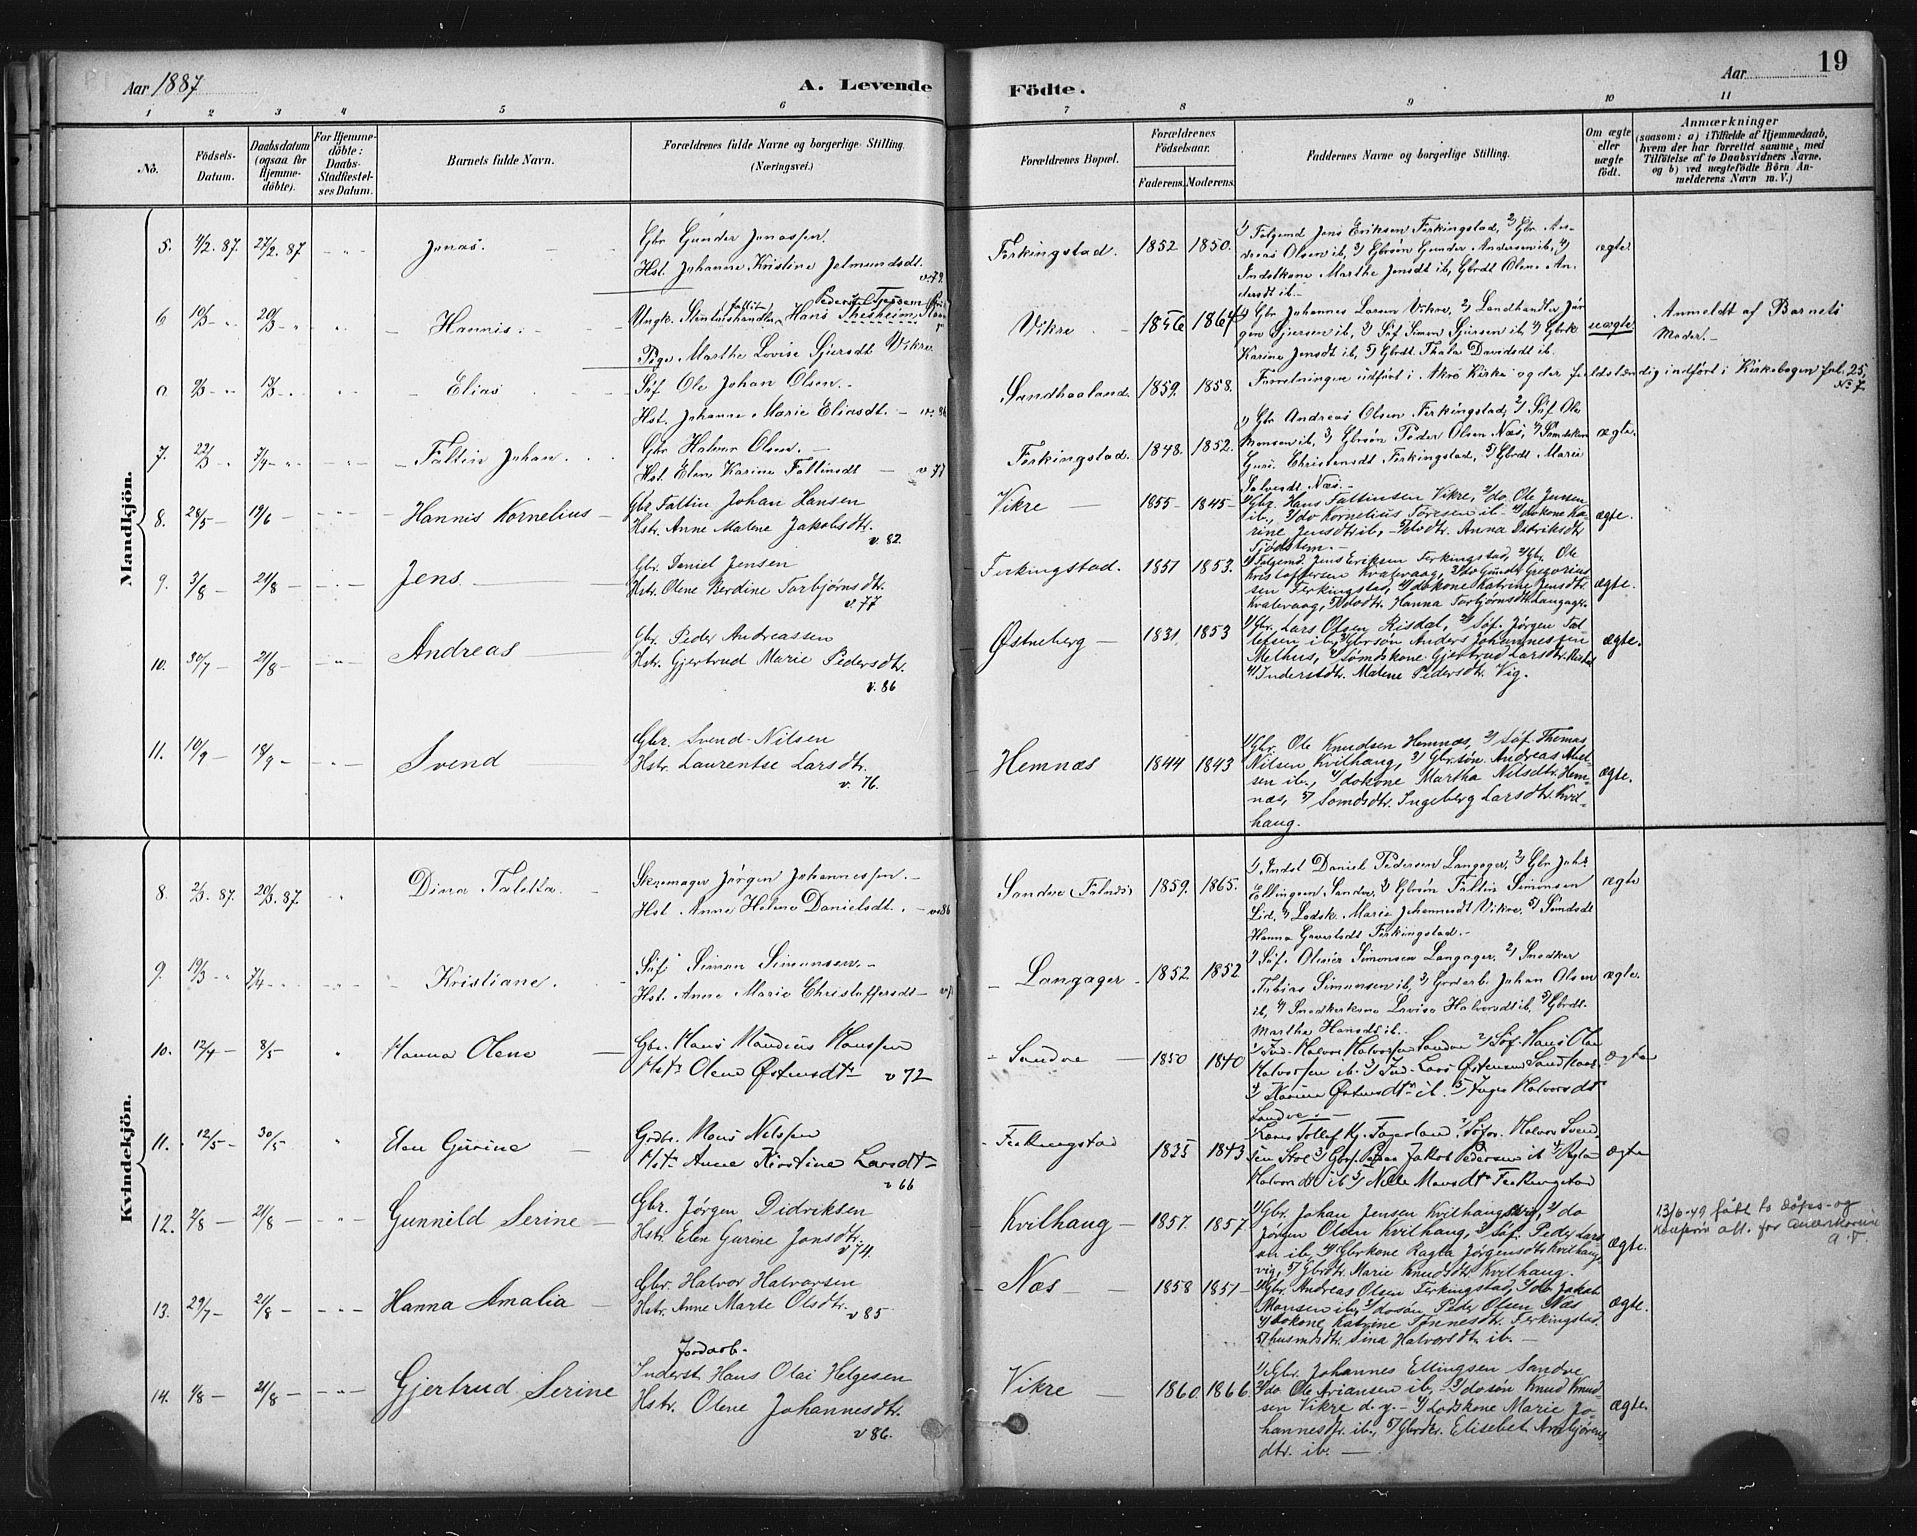 Aar 1887
A. Levende
Födte.
Aar
19
1 2 3 4 5 6 7 8 9 10 11
No.
Födsels-
Datum.
Daabsdatum
(ogsaa for
Hjemme-
döbte).
For Hjemme-
döbte:
Daabs-
Stadfæstel-
ses Datum.
Barnets fulde Navn.
Forældrenes fulde Navne og borgerlige Stilling.
(Næringsvei.)
Forældrenes Bopæl.
Forældrenes
Födselsaar.
Faderens. Moderens.
Faddernes Navne og borgerlige Stilling.
Om ægte
eller
uægte
födt.
Anmærkninger
(saasom: a) i Tilfælde af Hjemmedaab,
hvem der har forrettet samme, med
Tilföielse af to Daabsvidners Navne,
og b) ved uægtefödte Börn An-
melderens Navn m. V.)
Mandkjön.
5. 4/2. 87. 27/2. 87 Jonas.
Gbr Gunder Jonassen.
Hst. Johanne Kristine Jelmundsdt.
v. 79.
Ferkingstad. 1852 1850.
1) Folgemd Jens Eriksen Ferkingstad, 2) Gbr. An-
dreas Olsen ib, 3) Gbrsøn Gunder Andersen ib, 4)
Inderkone Marthe Jensdt ib, Gbrdt Olene An-
dersdt ib. –
ægte
6 10/3 20/3 Hannis.
Ungk. Hans
Pige Marthe Lovise Sjursdt Vikre.
Vikre 1856 1864
1) Gbr Johannes Larsen Vikre, 2) Landhandler Jør-
gen Sjursen ib, 3) Søf Simon Sjursen ib, 4) Gbrk
Karine Jensdt ib, 5) Gbrdt. Thala Davidsdt ib.
uægte
Anmeldt af Barnets
Moder. –
0 2/3 13/3 Elias
Søf Ole Johan Olsen. –
Hst. Johanne Marie Eliasdt. – v. 86
Sandhaaland. 1859. 1858.
Forretningen udført i Åkre Kirke og der fuldstændig indført i Kirkebogen fol. 25,
No 7.
7. 22/3 7/4 Faltin Johan.
Gbr Halvor Olsen. –
Hst Elen Karine Faltinsdt – v. 77
Ferkingstad. 1848. 1852.
1) Gbr Andreas Olsen Ferkingstad, 2) Søf Ole
Monsen ib, 3) Gbrsøn Peder Olsen Næs, 4) Sømdskone
Guri Christensdt Ferkingstad, 5) Gbrdt Marie
Salvesdt Næs. –
ægte.
8. 28/5 19/6 Hannis Kornelius
Gbr Faltin Johan Hansen
Hstr. Anne Malene Jakobsdtr.
v. 82.
Vikre 1855 1845
1/Gbr. Hans Faltinsen Vikre, 2/do. Ole Jensen
ib, 3/do Kornelius Toresen ib. 4/dokone Ka-
rine Jensdtr ib, Anna Didriksdt
Tjøstem. –
ægte.
9. 3/8 21/8 Jens
Gbr. Daniel Jensen
Hstr. Olene Berdine Torbjørnsdtr.
v. 77
Ferkingstad. 1851 1853.
1/Folgemd. Jens Eriksen Ferkingstad, 2/Gbr. Ole
Kristoffersen Kvalevaag, 3/do Gunder Gregorius-
sen Ferkingstad, 4/dokone Katrine Jensdtr.
Kvalevaag, 5/ Hanna Torbjørnsdtr Langager.
ægte.
10. 30/7 21/8 Andreas
Gbr. Peder Andreassen
Hstr. Gjertrud Marie Pedersdtr.
v. 86
Østneberg 1831 1853
1/Gbr. Lars Olsen Risdal, 2/Søf. Jørgen Tol-
lefsen ib, 3/Gbrsøn Anders Johannessen
Melhus, Sømdskone Gjertrud Larsdtr. Risdal
4/Inderstdtr. Malene Pedersdtr. Vig.
ægte.
11. 10/9 18/9 Svend
Gbr. Svend Nilsen
Hstr. Laurentse Larsdtr.
v. 76.
Hemnæs 1844 1843
1/Gbr. Ole Knudsen Hemnæs, 2/Søf. Thomas
Nilsen Kvilhaug, 3/Gbrsøn Andreas Abel-
sen ib., 4/dokone Martha Nilsdtr. Hem-
næs, 5/ Sømdsdtr. Ingeborg Larsdtr. Kvil-
haug.
ægte.
Kvindekjön.
8. 2/3. 87. 20/3. 87 Dina Taletta.
Skomager Jørgen Johannessen. –
Hst. Anne Helene Danielsdt. – v. 86
Sandve (Falnæs) 1859. 1865.
1) Indst Daniel Pedersen Langager, 2) Gbr Johs
Ellingsen Sandve, 3) Gbrsøn Faltin Simonsen
Lid, 4) Marie Johannesdt Vikre, 5) Sømdsdt
Hanna Govertsdt Ferkingstad. –
ægte
9. 19/3 7/4 Kristiane.
Søf Simon Simonsen. –
Hst. Anne Marie Christoffersdt –
Langager 1852 1852
1) Søf. Olivér Simonsen Langager, 2) Snedker
Tobias Simonsen ib, 3) Johan Olsen
ib, 4) Snedkerkone Lovise Halvorsdt ib, 5) Gbrdt.
Martha Hansdt ib. –
ægte.
10. 12/4 8/5 Hanna Olene
Gbr. Hans Mandeus Hanssen
Hst. Olene Østensdtr v 72
Sandve 1850 1840
1/ Ind. Halvor Halvorsen Sandve 2/ Søf. Hans Olai
Halvorsen ib. 3/ Ind. Lars Østensen Sandhaal.
4/ Karine Østensdtr ib. 5/ Inger Halvorsdt
Sandve. –
ægte
11. 12/5 30/5 Elen Gurine
Grdbr. Mons Nelssen
Hst. Anne Kirstine Larsdt
v 66
Ferkingstad 1835 1843
Tollef Kj. Fagerland 2/ Halvor Svend-
sen Stol 3/ Jakob Pedersen ib
Halvorsdt ib 5/ Nille Monsdtr Ferkingstad
ægte
12. 2/8 21/8 Gunnild Serine
Gbr. Jørgen Didriksen
Hstr. Elen Gurine Jonsdtr.
v 74.
Kvilhaug 1857. 1857
1/Gbr. Johan Jensen Kvilhaug, 2/do
Jørgen Olsen Kvilhaug, 3/Søf. Peder Lars-
sen ib, 4/Gbrkone Lagta Jørgensdtr. Kvilhaug-
vig, 5/Gbrdtr. Marie Knudsdtr. Kvilhaug.
ægte.
13/6-49 født to døps- og
att. for
13. 29/7 21/8 Hanna Amalia
Gbr. Halvor Halvorsen
Hstr. Anne Marte Olsdtr.
v 85
Næs 1858 1851
1/Gbr. Andreas Olsen Ferkingstad, 2/do Jakob
Monsen ib, 3/dosøn Peder Olsen Næs
4/dokone Katrine Tønnesdtr. Ferkingstad.
5/husmdsdtr. Sina Halvorsdt. ib. –
ægte.
14. 4/8 21/8 Gjertrud Serine
Jordarb.
Inderst Hans Olai Helgesen
Hstr. Olene Johannesdtr.
v 86.
Vikre 1860 1866.
1/Gbr. Johannes Ellingsen Sandve
2/do. Ole Ariansen ib, 3/dosøn Knud Knud-
sen Vikre d. y. – 4/Lodskone Marie Jo-
hannesdtr. ib., 5/Gbrdtr. Elisebet Annbjørns-
dtr. ib. –
ægte.